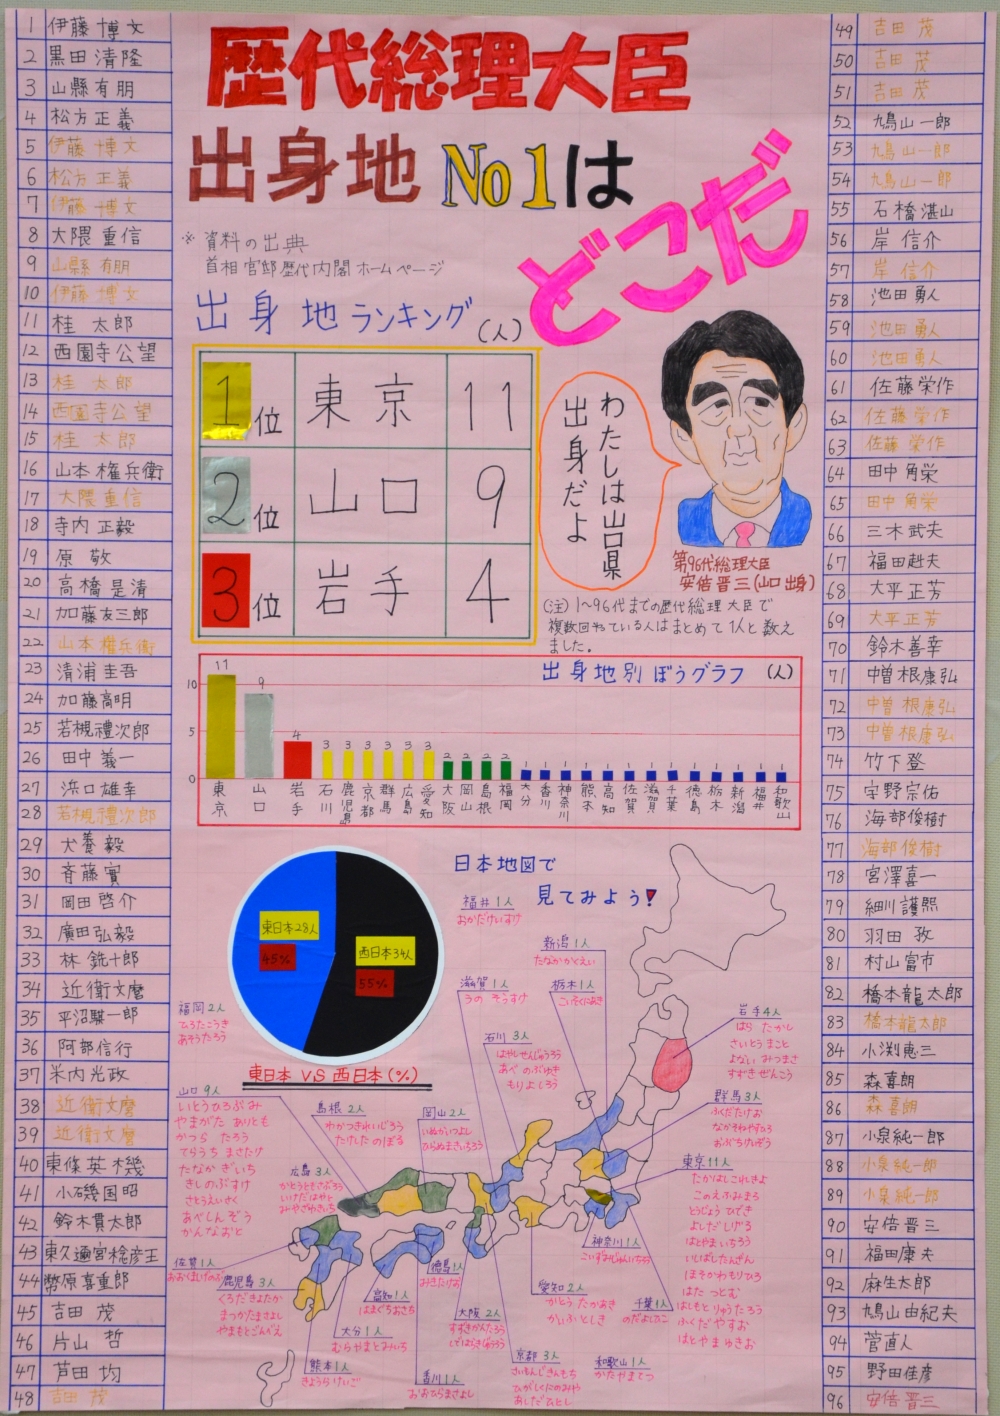 歴代総理大臣
出身地No1は
どこだ
※ 資料の出典
首相官邸歴代内閣ホームページ
出身地ランキング (人)
1位 東京 11
2位 山口 9
3位 岩手 4
わたしは山口県
出身だよ
第96代総理大臣
安倍晋三(山口出身)
(注) 1〜96代までの歴代総理大臣で
複数回やている人はまとめて1人と数え
ました。
1 伊藤博文
2 黒田清隆
3 山縣有朋
4 松方正義
5 伊藤博文
6 松方正義
7 伊藤博文
8 大隈重信
9 山縣有朋
10 伊藤博文
11 桂太郎
12 西園寺公望
13 桂太郎
14 西園寺公望
15 桂太郎
16 山本権兵衛
17 大隈重信
18 寺内正毅
19 原敬
20 高橋是清
21 加藤友三郎
22 山本権兵衛
23 清浦圭吾
24 加藤高明
25 若槻禮次郎
26 田中義一
27 浜口雄幸
28 若槻禮次郎
29 犬養毅
30 斉藤實
31 岡田啓介
32 廣田弘毅
33 林銑十郎
34 近衛文麿
35 平沼騏一郎
36 阿部信行
37 米内光政
38 近衛文麿
39 近衛文麿
40 東條英機
41 小磯國昭
42 鈴木貫太郎
43 東久邇宮稔彦王
44 幣原喜重郎
45 吉田茂
46 片山哲
47 芦田均
48 吉田茂
49 吉田茂
50 吉田茂
51 吉田茂
52 鳩山一郎
53 鳩山一郎
54 鳩山一郎
55 石橋湛山
56 岸信介
57 岸信介
58 池田勇人
59 池田勇人
60 池田勇人
61 佐藤栄作
62 佐藤栄作
63 佐藤栄作
64 田中角栄
65 田中角栄
66 三木武夫
67 福田赳夫
68 大平正芳
69 大平正芳
70 鈴木善幸
71 中曽根康弘
72 中曽根康弘
73 中曽根康弘
74 竹下登
75 宇野宗佑
76 海部俊樹
77 海部俊樹
78 宮澤喜一
79 細川護熙
80 羽田孜
81 村山富市
82 橋本龍太郎
83 橋本龍太郎
84 小渕恵三
85 森喜朗
86 森喜朗
87 小泉純一郎
88 小泉純一郎
89 小泉純一郎
90 安倍晋三
91 福田康夫
92 麻生太郎
93 鳩山由紀夫
94 菅直人
95 野田佳彦
96 安倍晋三
出身地別ぼうグラフ (人)
10
5
0
11 9 4 3 3 3 3 3 3 2 2 2 2 1 1 1 1 1 1 1 1 1 1 1 1 1
東京 山口 岩手 石川 鹿児島 京都 群馬 広島 愛知 大阪 岡山 島根 福岡 大分 香川 神奈川 熊本 高知 佐賀 滋賀 千葉 徳島 栃木 新潟 福井 和歌山
東日本28人
45%
西日本34人
55%
東日本 VS 西日本(%)
日本地図で
見てみよう!
福井1人
おかだけいすけ
新潟1人
たなかかくえい
滋賀1人
うのそうすけ
栃木1人
石川3人
はやしせんじゅうろう
あべのぶゆき
もりよしろう
岩手4人
はらたかし
さいとうまこと
よないみつまさ
すずきぜんこう
群馬3人
ふくだたけお
なかそねやすひろ
おぶちけいぞう
東京11人
たかはしこれきよ
このえふみまろ
とうじょうひでき
よしだしげる
はとやまいちろう
いしばしたんざん
ほそかわもりひろ
はたつとむ
はしもとりゅうたろう
ふくだやすお
はとやまゆきお
神奈川1人
こいずみじゅんいちろう
千葉1人
のだよしひこ
愛知2人
かとうたかあき
かいふとしき
和歌山1人
かたやまてつ
京都3人
さいおんじきんもち
ひがしくにのみや
あしだひとし
大阪2人
すずきかんたろう
しではらきじゅうろう
香川1人
おおひらまさよし
徳島1人
みきたけお
高知1人
はまぐちおさち
大分1人
むらやまとみいち
熊本1人
きようらけいご
鹿児島3人
くろだきよたか
まつかたまさよし
やまもとごんべえ
佐賀1人
おおくましげのぶ
福岡2人
ひろたこうき
あそうたろう
山口9人
いとうひろぶみ
やまがたありとも
かつらたろう
てらうちまさたけ
たなかぎいち
きしのぶすけ
さとうえいさく
あべしんぞう
かんなおと
島根2人
わかつきれいじろう
たけしたのぼる
岡山2人
いぬかいつよし
ひらぬまきいちろう
広島3人
かとうともさぶろう
いけだはやと
みやざわきいち